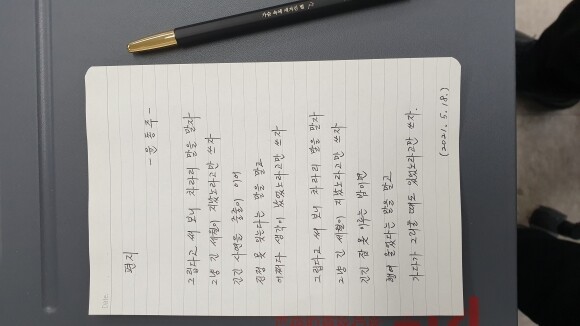 가슴 속에 새겨진 별
편지
- 윤 동 주 -
그립다고 써 보니 차라리 말을 말자
그냥 긴 세월이 지났노라고만 쓰자
긴긴 사연을 줄줄이 이어
진정 못 잊는다는 말을 말고
어쩌다 생각이 났었노라고만 쓰자
그립다고 써 보니 차라리 말을 말자
그냥 긴 세월이 지났노라고만 쓰자
긴긴 잠 못 이루는 밤이면
행여 울었다는 말을 말고
가다가 그리울 때도 있었노라고만 쓰자.
(2021. 5. 18.)